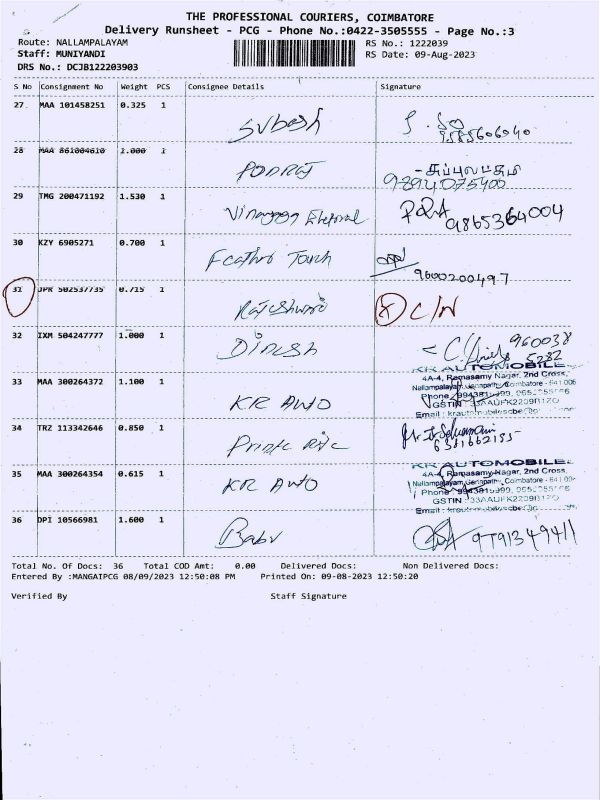 THE PROFESSIONAL COURIERS, COIMBATORE
Delivery Runsheet - PCG - Phone No.:0422-3505555 - Page No.:3
Route: NALLAMPALAYAM RS No.: 1222039
Staff: MUNIYANDI RS Date: 09-Aug-2023
DRS No.: DCJB122203903
S No Consignment No Weight PCS Consignee Details Signature
27 MAA 101458251 0.325 1
Subash
28 MAA 861004610 1.000 1
29 TMG 200471192 1.530 1
9865364004
30 KZY 6905271 0.700 1
Touch
9600200497
31 JPR 502537735 0.715 1
Rajeshwari X C/N
32 IXM 504247777 1.000 1
Dinesh 960038
5282
KR AUTOMOBILE
33 MAA 300264372 1.100 1 4A-4, Ramasamy Nagar, 2nd Cross,
Nallampalayam, Ganapathy, Coimbatore - 641 006
KR Auto Phone
GSTIN : 33AAUFK2209
Email : krautomobilescbe@
34 TRZ 113342646 0.850 1
6381662155
KR AUTOMOBILE
35 MAA 300264354 0.615 1 4A-4, Ramasamy Nagar, 2nd Cross,
Nallampalayam, Ganapathy, Coimbatore - 641 00
KR Auto Phone
GSTIN
Email : krautomobilescbe@
36 DPI 10566981 1.600 1
Babu 9791349411
Total No. Of Docs: 36 Total COD Amt: 0.00 Delivered Docs: Non Delivered Docs:
Entered By :MANGAIPCG 08/09/2023 12:50:08 PM Printed On: 09-08-2023 12:50:20
Verified By Staff Signature